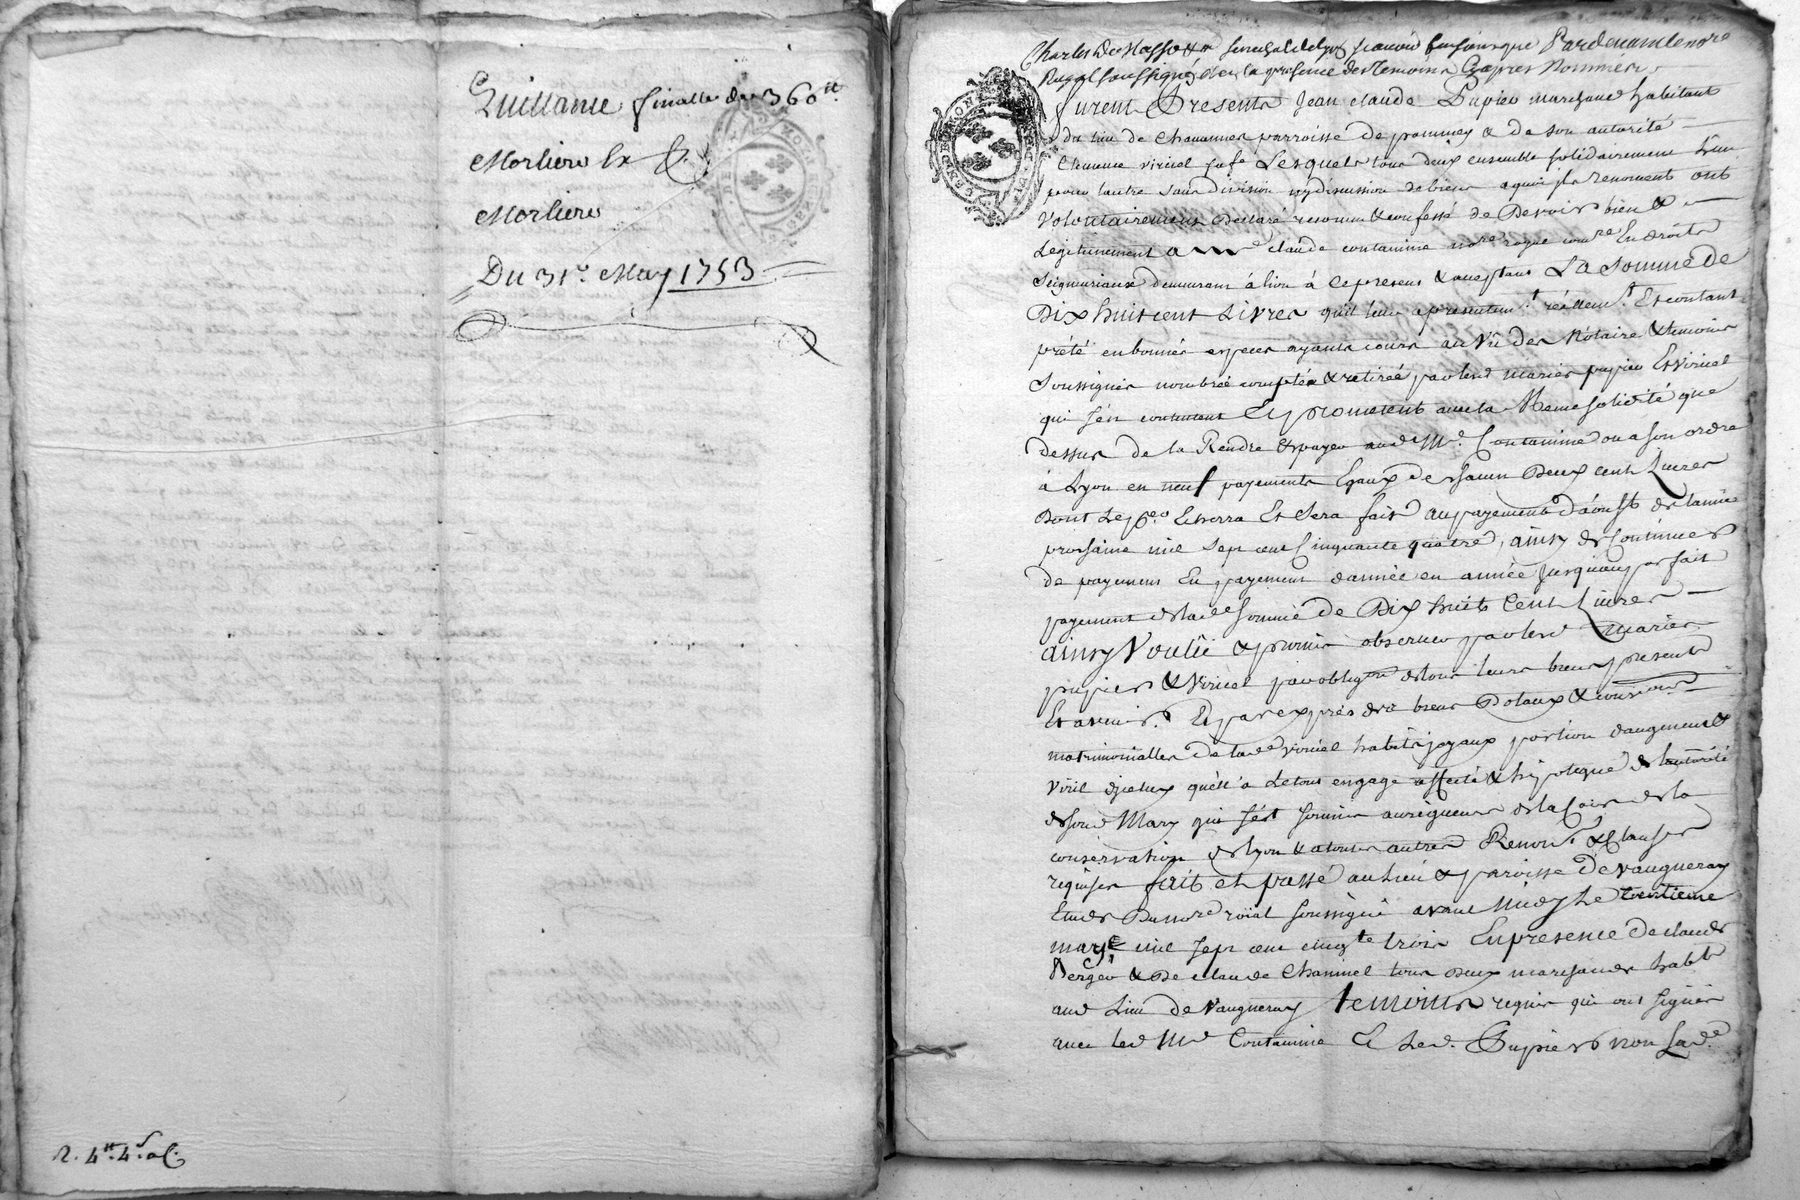 Quittance finalle de 360ᵗᵗ
Morliere
Morliere
Du 31ᵉ May 1753
R. 4ᵗᵗ 4ˢ
Charles De Masso senechal de Lyon scavoir faisons que Pardevant le noʳᵉ
Royal soussigné et en la presence des Temoins Cyapres Nommez
furent Presents Jean claude Pupier marchand habitant
du lieu de Chavannes parroisse de pommey & de son autorité
viricel sa fᵉ Lesquels tous deux ensemble solidairement L'un
pour l'autre sans division ny discussion de biens a quoi ils renoncent ont
volontairement declaré reconnu & confessé de Devoir bien &
Legitimement a Mᵉ claude contamine noʳᵉ royal comʳᵉ En droits
Seigneuriaux demeurant à lion à ce present & aceptant La somme de
Dix huit cent Livres qu'il leur a presentemᵗ réellemᵗ Et contant
prété en bonnes especes ayants cours au Vû des Notaire & temoins
Soussignés nombrée comptée & retirée par lesd mariés pupier Et Viricel
qui s'en contentent Et prometent avec la Meme solidité que
dessus de la Rendre & payer aud Mᵉ Contamine ou a son ordre
à Lyon en neuf payements Egaux de chacun Deux cent Livres
Dont Le pᵉʳ Echerra Et Sera fait au payement d'aoust de l'année
prochaine mil sept cent Cinquante quatre, ainsy de Continuer
de payement En payement d'année en année Jusqu'au parfait
payement de lade somme de Dix huit Cent Livres
ainsy Voulû & promis observer par lesd mariés
pupier & Viricel par obligᵒⁿ de tous leurs biens presents
Et avenir. Et par exprés des biens Dotaux &
matrimoniaux de lade viricel habits joyaux portion d'augment &
viril d'iceux qu'ell'a Le tous engagé affecté & hipotequé de l'autorité
de sond Mary qui s'est soumis aux rigueurs de la Cour de la
conservation de lyon & a toutes autres Renonᵒⁿ & Clauses
requises fait et passé au Lieu & paroisse De vaugneray
Etude Du noʳᵉ roial soussigné avant Midy Le trentieme
mars mil sept cent cinqᵗᵉ trois En presence De claude
Berger & De claude Chaninel tous Deux marchands habᵗˢ
aud Lieu de Vaugneray temoins requis qui ont signés
avec led Mᵉ Contamine Et Led. Pupier & non lade